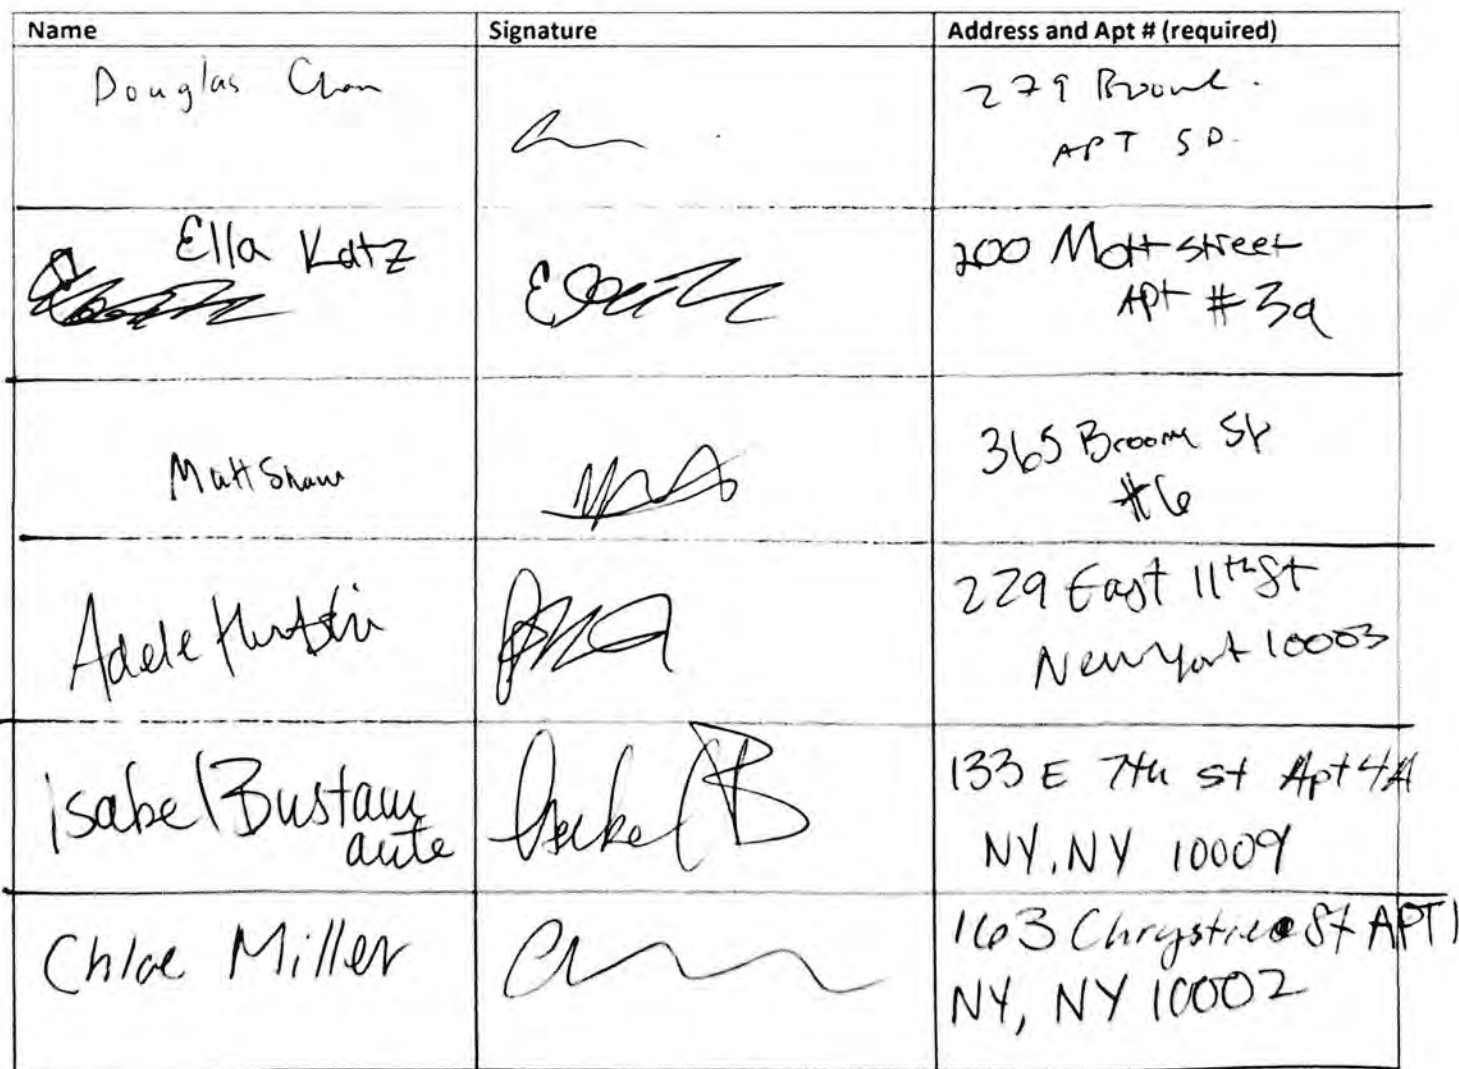 Name Signature Address and Apt # (required)
Douglas Chan
279 Broome.
APT 5D.
Ella Katz
200 Mott street
Apt #3a
Matt Shaw
365 Broom St
#6
Adele
229 East 11th St
New York 10003
Isabel Bustam
ante
Isabel B
133 E 7th st Apt 4A
NY, NY 10009
Chloe Miller
163 Chrystie St APT 1
NY, NY 10002